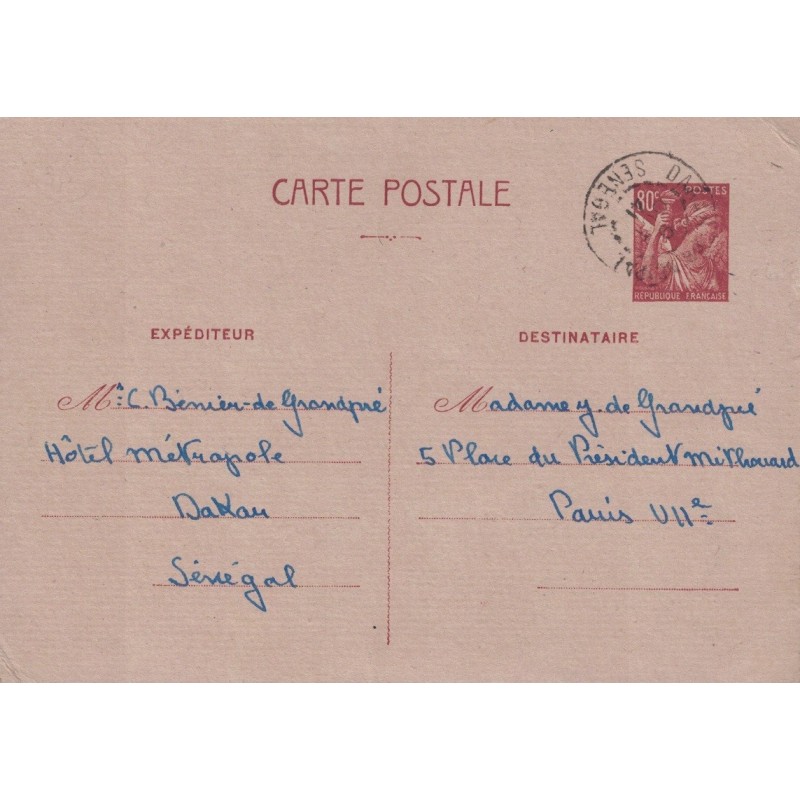 CARTE POSTALE
DAKAR
SÉNÉGAL
80c POSTES
RÉPUBLIQUE FRANÇAISE
EXPÉDITEUR
Mr C. Bénier-de Grandpré
Hôtel Métropole
Dakar
Sénégal
DESTINATAIRE
Madame y. de Grandpré
5 Place du Président Mithouard
Paris VIIe